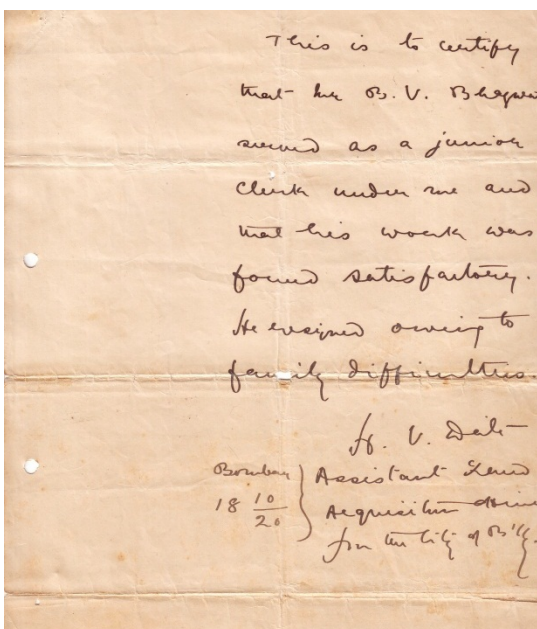 This is to certify
that Mr B. V. Bhagwa
served as a junior
clerk under me and
that his work was
found satisfactory.
He resigned owing to
family difficulties.
H. V. Dat
Bombay
18 10/20
Assistant Land
Acquisition
for the City of B'y.